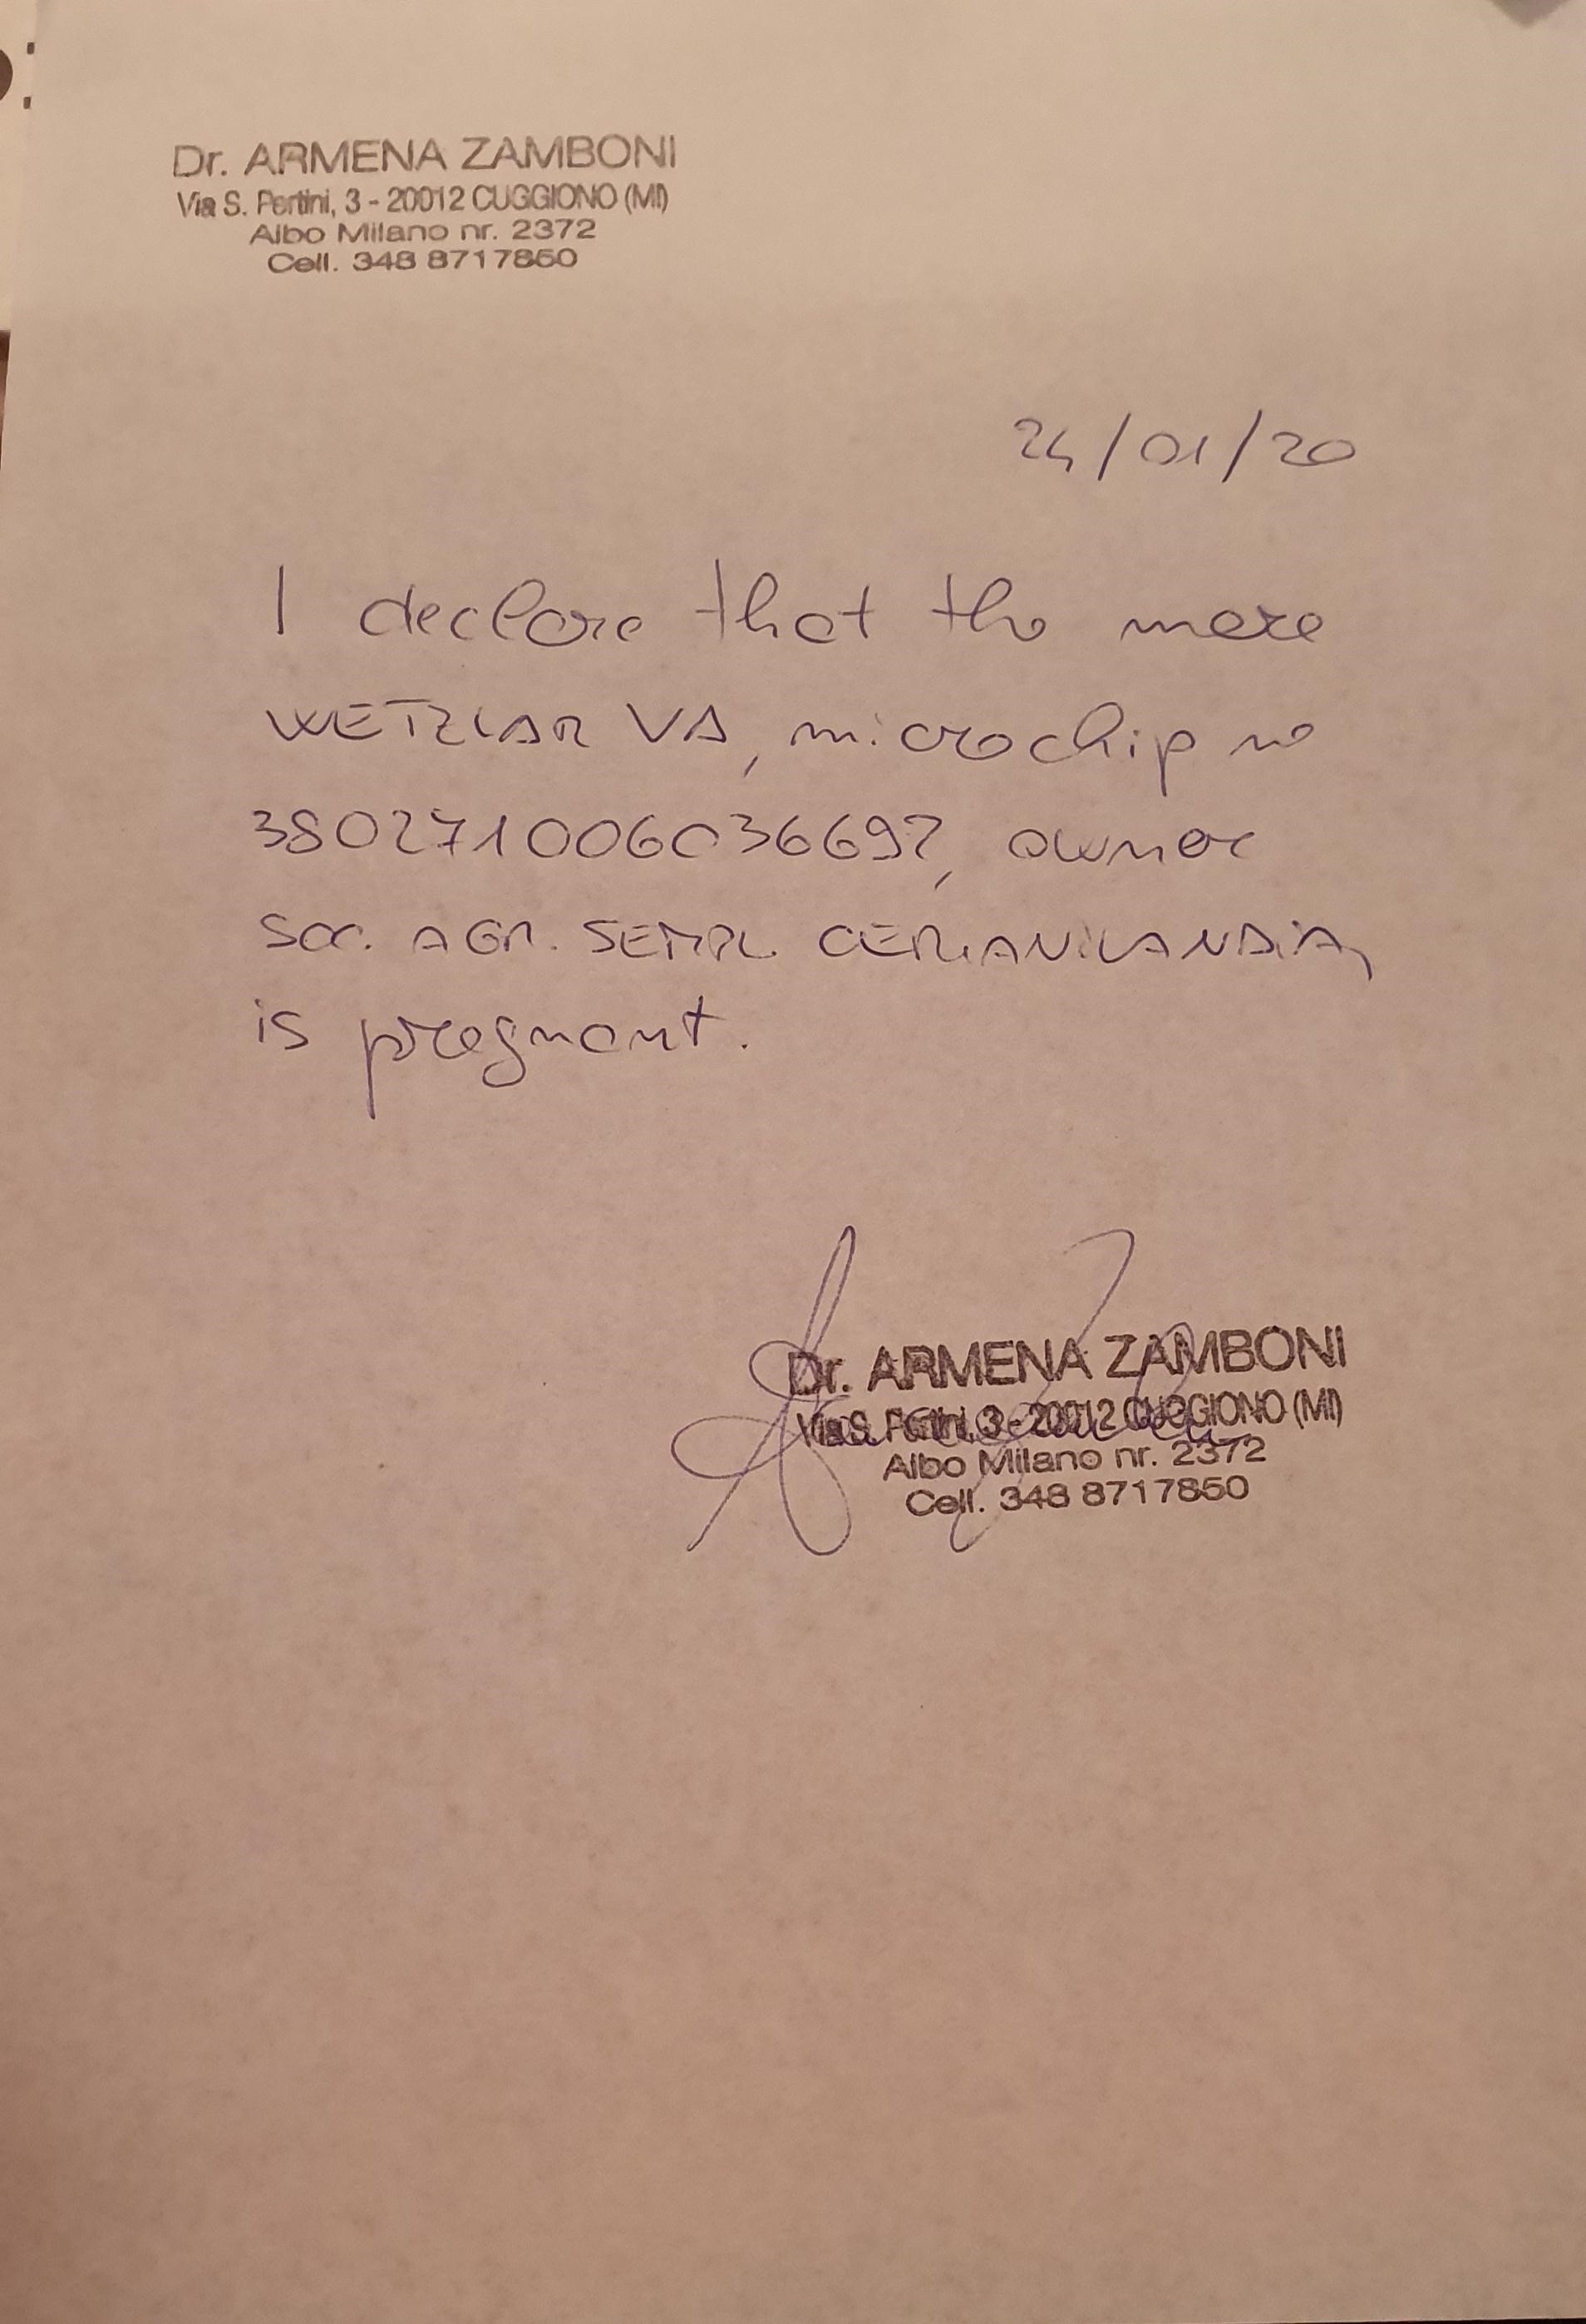 Dr. ARMENA ZAMBONI
Via S. Pertini, 3 - 20012 CUGGIONO (MI)
Albo Milano nr. 2372
Cell. 348 8717850
24/01/20
I declare that the mare
WETZLAR VA, microchip no
380271006036697, owner
SOC. AGR. SEMPL.
is pregnant.
Dr. ARMENA ZAMBONI
Via S. Pertini, 3 - 20012 CUGGIONO (MI)
Albo Milano nr. 2372
Cell. 348 8717850